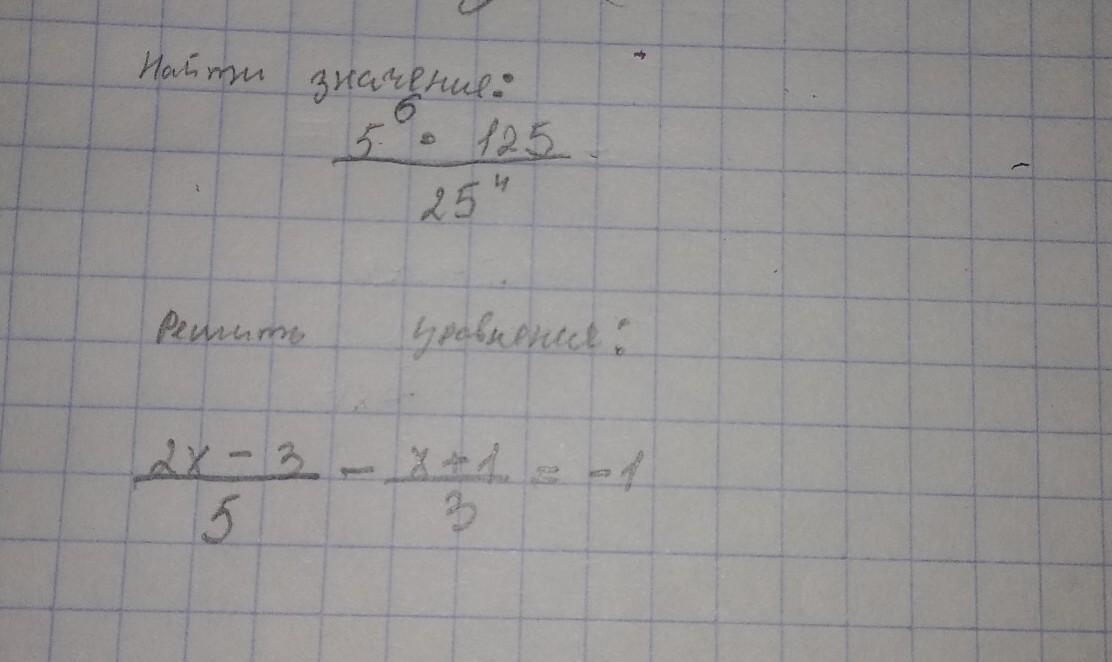 Найти значение:
5⁶ • 125
25⁴
Решить уравнения:
2x - 3 - x + 1 = -1
5 3